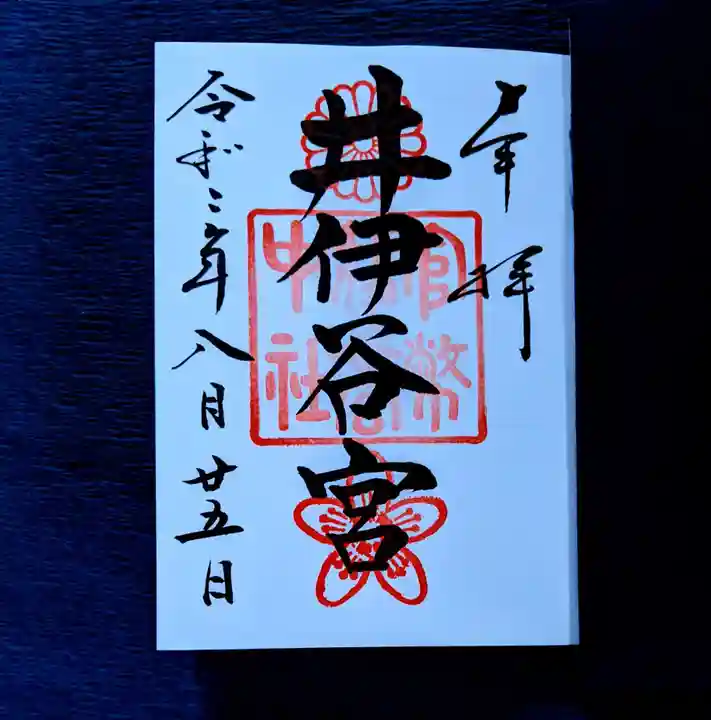 奉拝
井伊谷宮
官幣
中社
令和二年八月廿五日